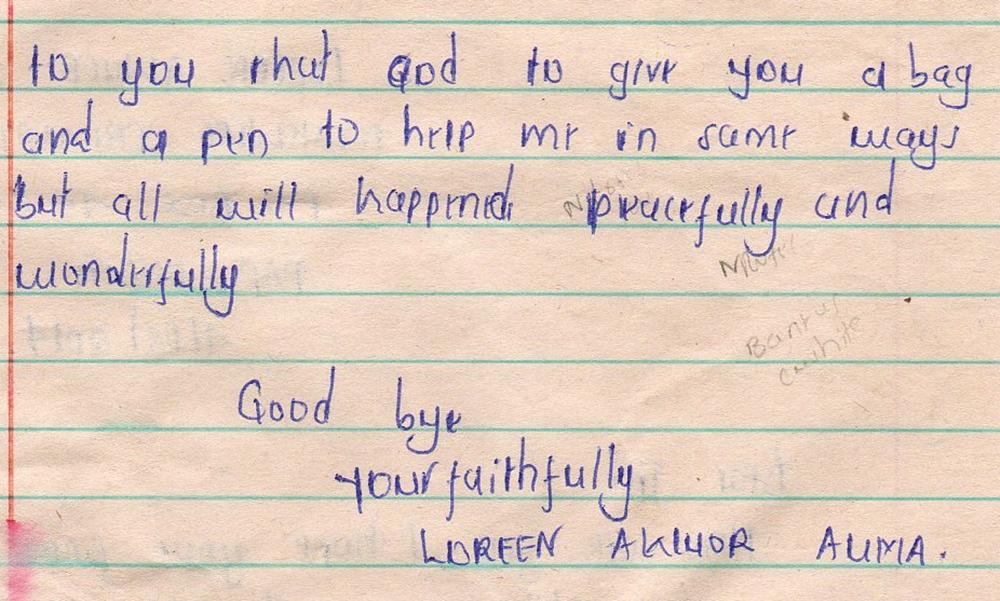 to you that God to give you a bag
and a pen to help me in same ways
but all will happened peacefully and
wonderfully
Good bye
your faithfully
LOREEN AKINOR AUMA.